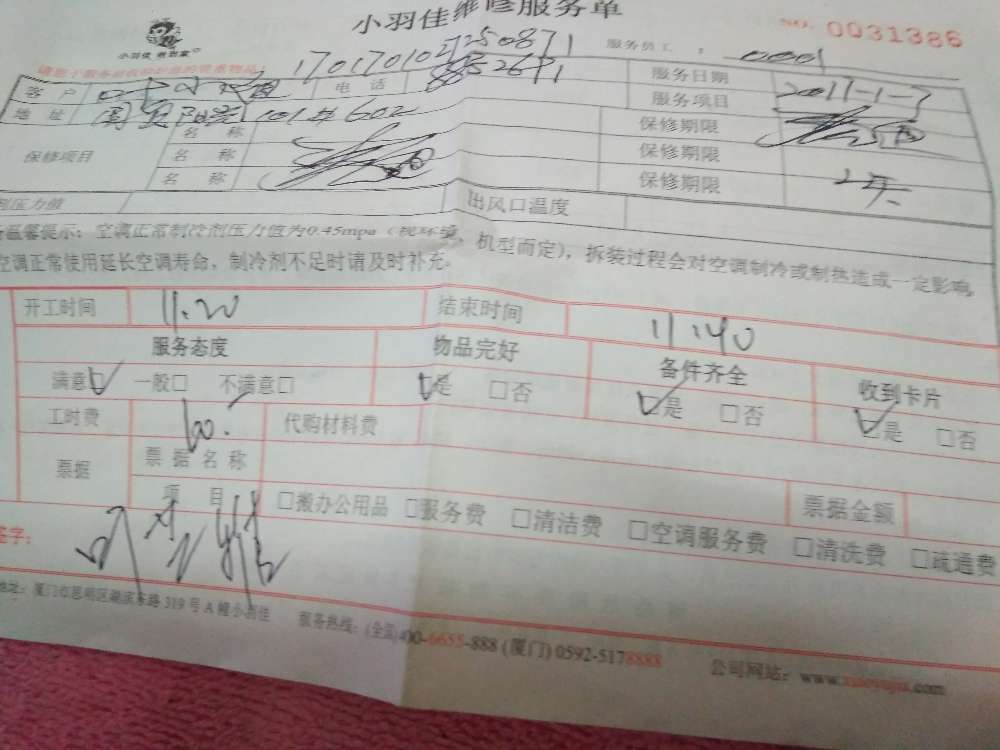 小羽佳维修服务单
NO. 0031386
小羽佳 帮到家
17017010225087 1 服务员工： 0001
客户 电话 服务日期 2017-1-7
地址 101# 602 服务项目
保修项目 名称 保修期限
名称 保修期限
名称 保修期限
剂压力值 出风口温度
温馨提示：空调正常制冷剂压力值为0.45mpa（视环境，机型而定），拆装过程会对空调制冷或制热造成一定影响，
空调正常使用延长空调寿命，制冷剂不足时请及时补充。
开工时间 11:20 结束时间 11:40
服务态度 物品完好 备件齐全 收到卡片
满意□ 一般□ 不满意□ □是 □否 □是 □否 □是 □否
工时费 60. 代购材料费
票据 票据名称 票据金额
项目 □搬办公用品 □服务费 □清洁费 □空调服务费 □清洗费 □疏通费
签字：
地址：厦门市思明区湖滨东路319号A幢小羽佳 服务热线：(全国)400-6655-888 (厦门) 0592-5178888 公司网站：www.xiaoyujia.com